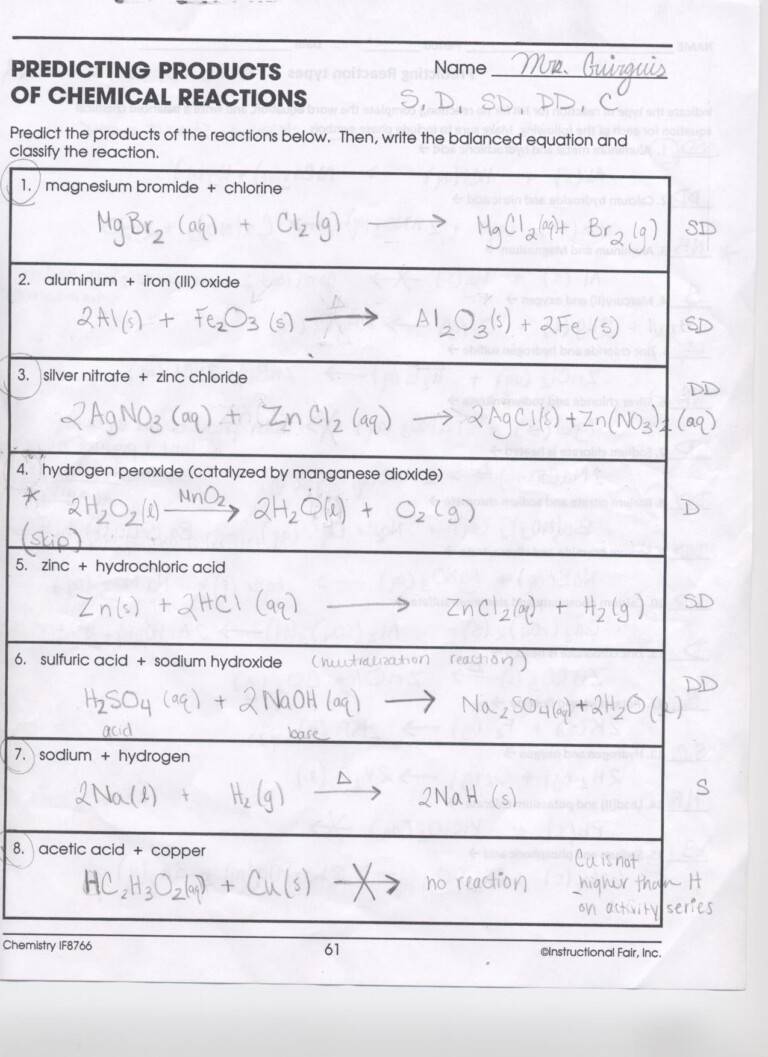 PREDICTING PRODUCTS
OF CHEMICAL REACTIONS
Name Mrs. Guirguis
S, D, SD, DD, C
Predict the products of the reactions below. Then, write the balanced equation and
classify the reaction.
1. magnesium bromide + chlorine
MgBr₂ (aq) + Cl₂ (g) → MgCl₂(aq) + Br₂ (g) SD
2. aluminum + iron (III) oxide
2Al(s) + Fe₂O₃ (s) Δ→ Al₂O₃(s) + 2Fe (s) SD
3. silver nitrate + zinc chloride
2AgNO₃ (aq) + ZnCl₂ (aq) → 2AgCl(s) + Zn(NO₃)₂ (aq) DD
4. hydrogen peroxide (catalyzed by manganese dioxide)
* 2H₂O₂(l) MnO₂→ 2H₂O(l) + O₂ (g) D
(skip)
5. zinc + hydrochloric acid
Zn(s) + 2HCl (aq) → ZnCl₂(aq) + H₂(g) SD
6. sulfuric acid + sodium hydroxide (neutralization reaction)
H₂SO₄ (aq) + 2NaOH (aq) → Na₂SO₄(aq) + 2H₂O(l) DD
acid base
7. sodium + hydrogen
2Na(l) + H₂(g) Δ→ 2NaH (s) S
8. acetic acid + copper
HC₂H₃O₂(aq) + Cu(s) → no reaction
Cu is not
higher than H
on activity series
Chemistry IF8766
61
©Instructional Fair, Inc.